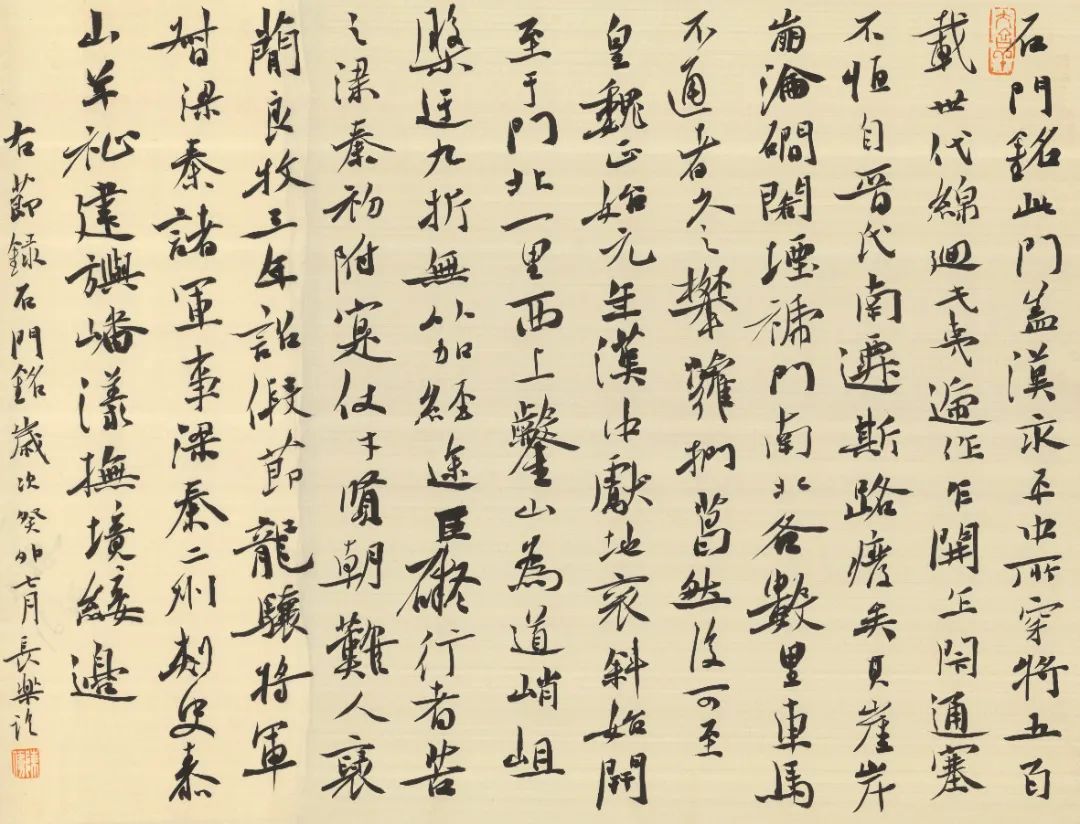 石門銘此門蓋漢永平中所穿將五百
載世代綿迴戎夷遞作乍開乍閇通塞
不恒自晉氏南遷斯路廢矣其崖岸
崩淪磵閣堙褫門南北各數里車馬
不通者久之攀蘿捫葛然後可至
皇魏正始元年漢中獻地褒斜始開
至于門北一里西上鑿山為道峭岨
槃迂九折無以加經途巨礙行者苦
之梁秦初附寔仗才賢朝難人褒
簡良牧三年詔假節龍驤將軍
督梁秦諸軍事梁秦二州刺史泰
山羊祉建旟嶓漾撫境綏邊
右節錄石門銘歲次癸卯七月長樂